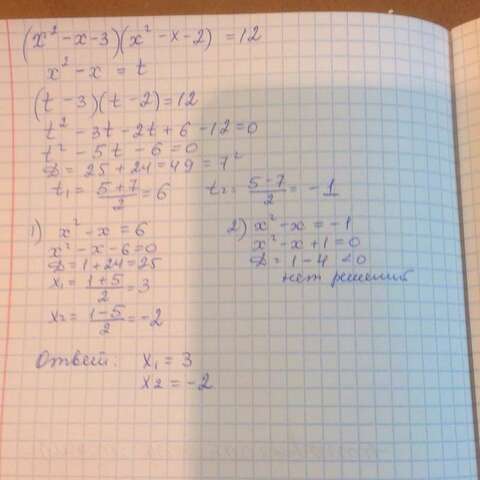 (x² - x - 3)(x² - x - 2) = 12
x² - x = t
(t - 3)(t - 2) = 12
t² - 3t - 2t + 6 - 12 = 0
t² - 5t - 6 = 0
D = 25 + 24 = 49 = 7²
t₁ = (5+7)/2 = 6 t₂ = (5-7)/2 = -1
1) x² - x = 6
x² - x - 6 = 0
D = 1 + 24 = 25
x₁ = (1+5)/2 = 3
x₂ = (1-5)/2 = -2
2) x² - x = -1
x² - x + 1 = 0
D = 1 - 4 < 0
нет решений
Ответ: x₁ = 3
x2 = -2